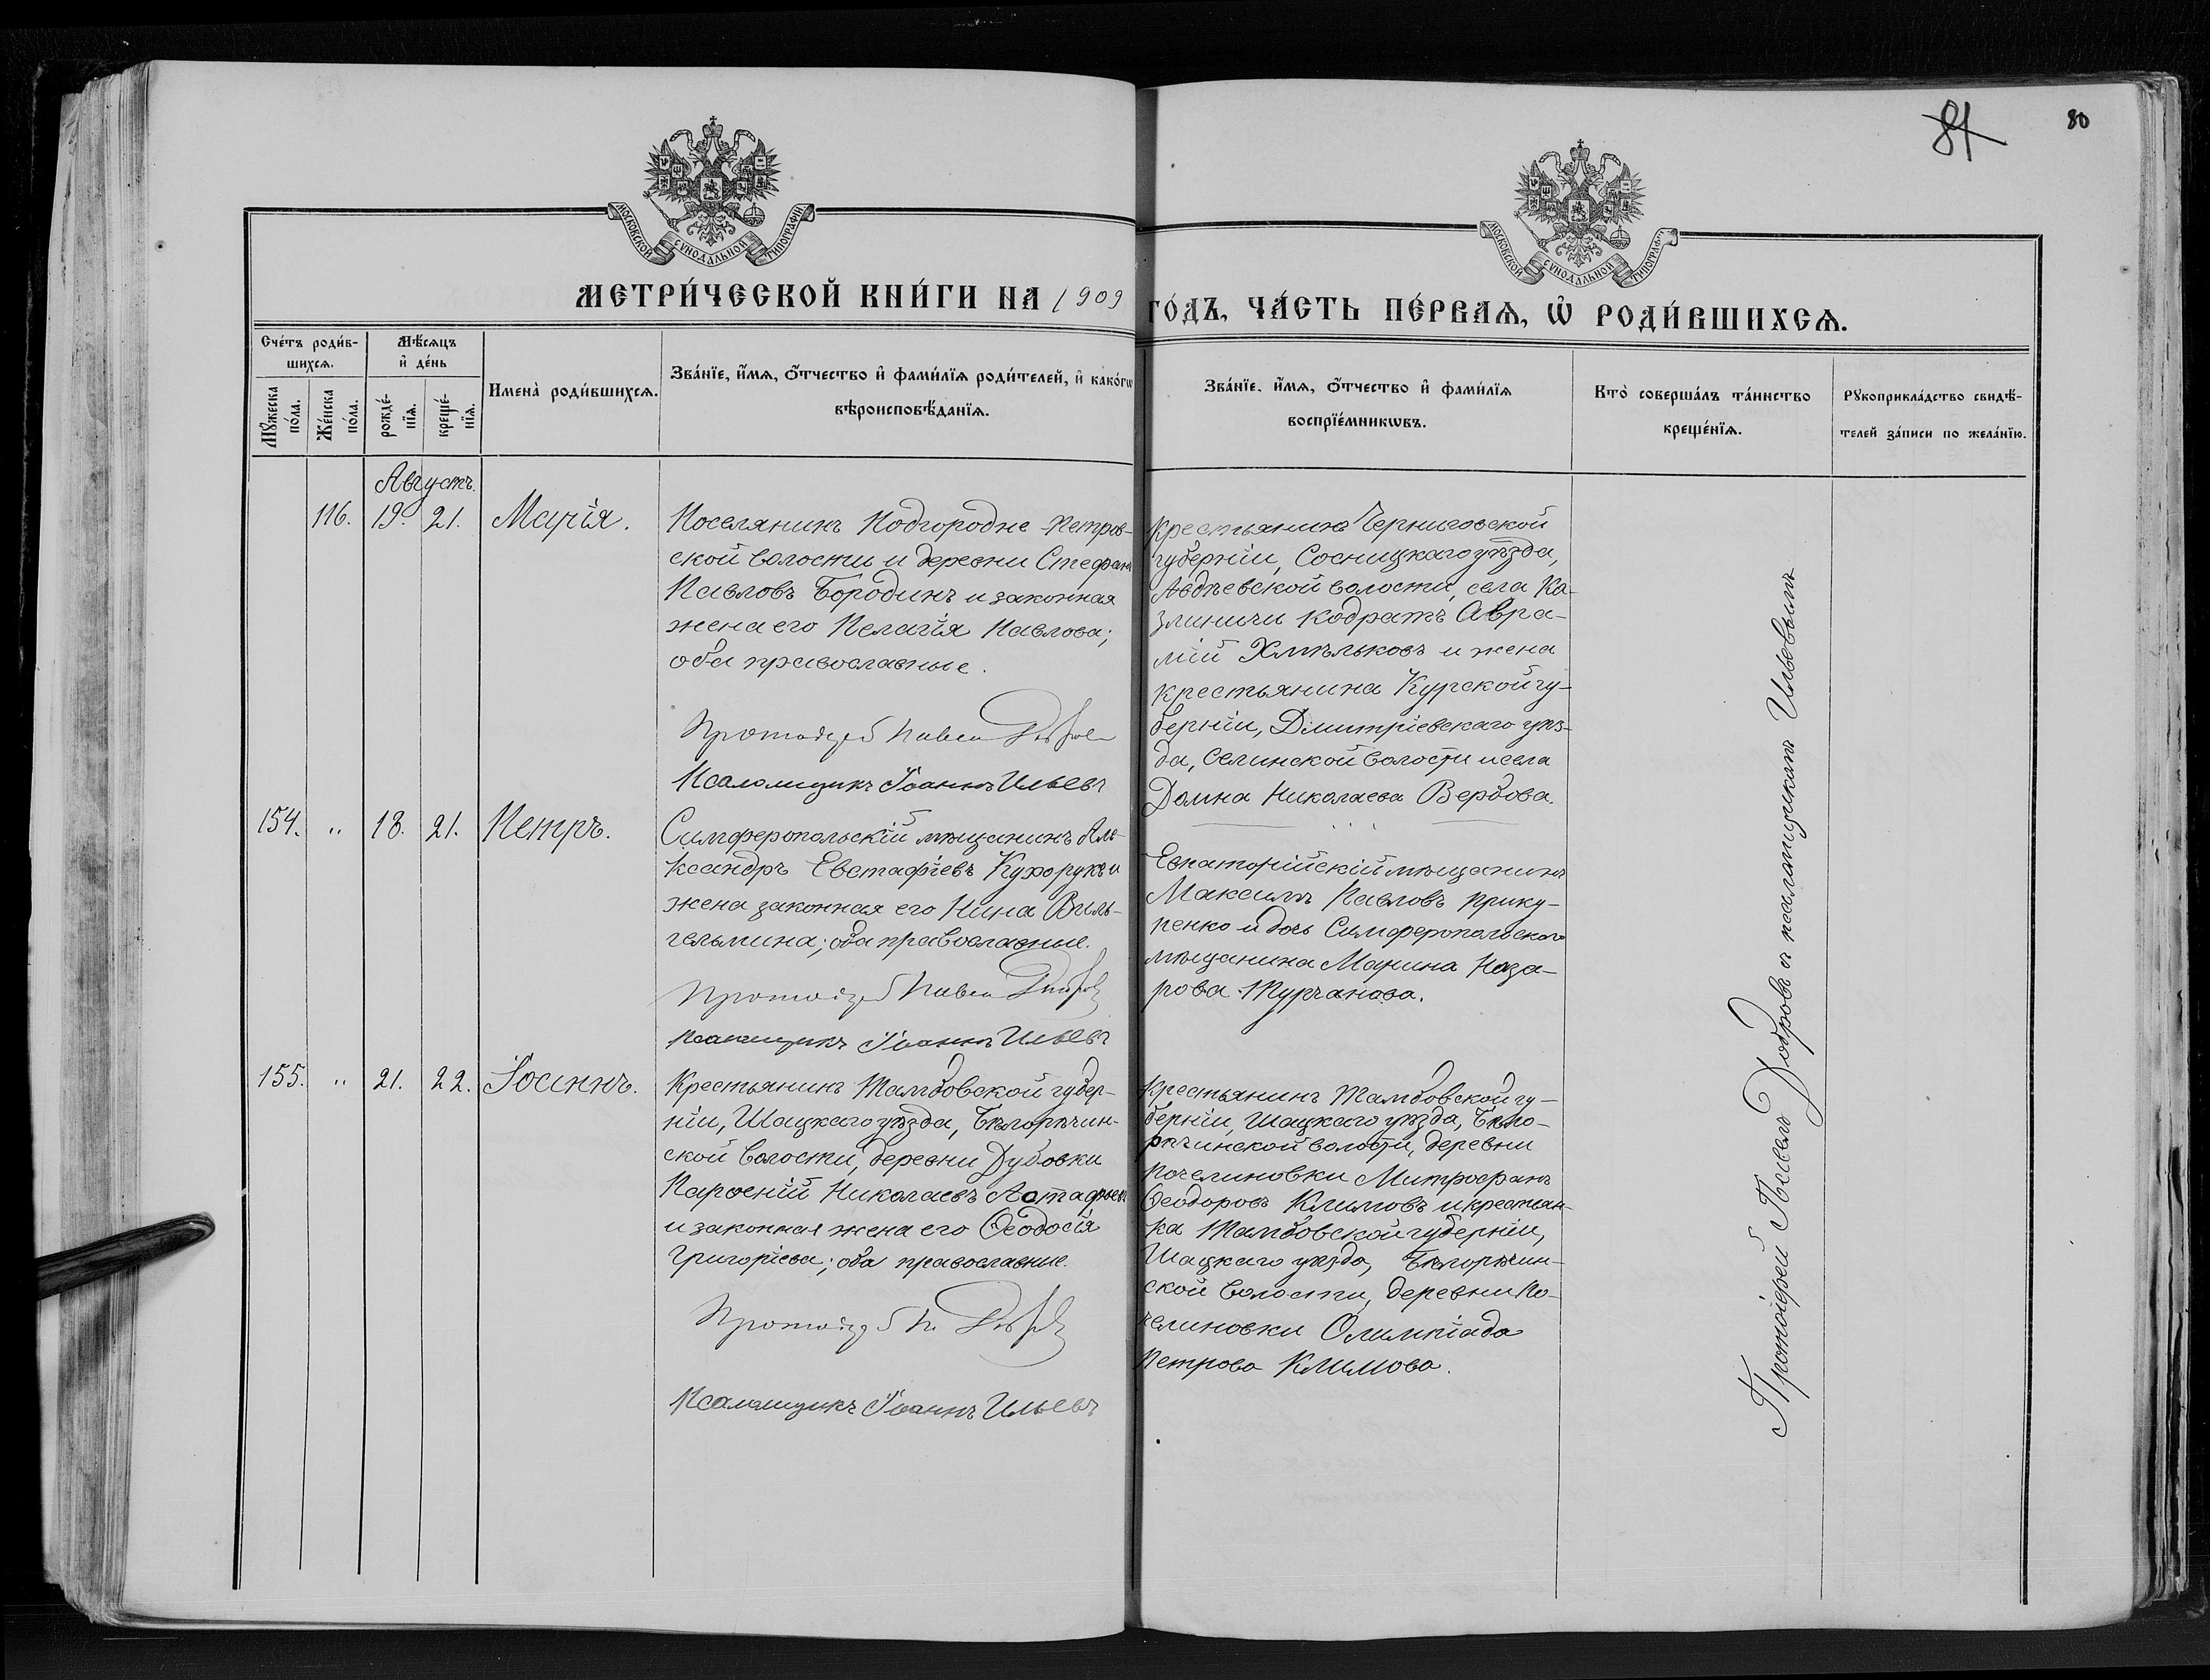 81
80
МОСКОВСКОЙ СѴНОДАЛЬНОЙ ТИПОГРАФІИ
МОСКОВСКОЙ СѴНОДАЛЬНОЙ ТИПОГРАФІИ
МЕТРИ́ЧЕСКОЙ КНИ́ГИ НА 1909
ГО́ДЪ, ЧА́СТЬ ПЕ́РВАѦ, Ѽ РОДИ́ВШИХСѦ.
Сче́тъ роди́в-
шихсѧ.
Мꙋжеска
по́ла.
Же́нска
по́ла.
Мѣ́сѧцъ
и҆ де́нь
рожде́-
нїѧ.
креще́-
нїѧ.
Имена̀ роди́вшихсѧ.
Зва́нїе, и҆́мѧ, ѻ҆́тчество и҆ фами́лїѧ роди́телей, и҆ како́гѡ
вѣроисповѣ́данїѧ.
Зва́нїе. и҆́мѧ, ѻ҆́тчество и҆ фами́лїѧ
воспрїе́мникѡвъ.
Кто̀ соверша́лъ та́инство
креще́нїѧ.
Рꙋкоприкла́дство свидѣ́-
телей за́писи по жела́нїю.
Августъ.
116. 19. 21. Марія.
Поселянинъ Подгородне-Петров-
ской волости и деревни Стефанъ
Павловъ Бородинъ и законная
жена его Пелагія Павлова;
оба православные.
Протоіерей Павелъ Добровъ
Псаломщикъ Іоаннъ Ильевъ
Крестьянинъ Черниговской
губерніи, Сосницкаго уѣзда,
Авдѣевской волости, села Ка-
зличичи Кодратъ Авра-
мій Хмѣльковъ и жена
крестьянина Курской гу-
берніи, Дмитріевскаго уѣз-
да, Селинской волости и села
Домна Николаева Вербова.
154. " 18. 21. Петръ.
Симферопольскій мѣщанинъ Але-
ксандръ Евстафіевъ Кухорукъ и
жена законная его Нина Виль-
гельмина; оба православные.
Протоіерей Павелъ Добровъ
Псаломщикъ Іоаннъ Ильевъ
Евпаторійскій мѣщанинъ
Максимъ Павловъ Прику-
пенко и дочь Симферопольскаго
мѣщанина Марина Наза-
рова Турчанова.
155. " 21. 22. Іоаннъ.
Крестьянинъ Тамбовской губер-
ніи, Шацкаго уѣзда, Бѣлорѣчин-
ской волости, деревни Дубовки
Парѳеній Николаевъ Астафьевъ
и законная жена его Ѳеодосія
Григоріева; оба православные.
Протоіерей П. Добровъ
Псаломщикъ Іоаннъ Ильевъ
Крестьянинъ Тамбовской гу-
берніи, Шацкаго уѣзда, Бѣло-
рѣчинской волости, деревни
Почелиновки Митрофанъ
Ѳеодоровъ Климовъ и крестьян-
ка Тамбовской губерніи,
Шацкаго уѣзда, Бѣлорѣчин-
ской волости, деревни По-
челиновки Олимпіада
Петрова Климова.
Протоіерей Павелъ Добровъ съ псаломщикомъ Ильевымъ